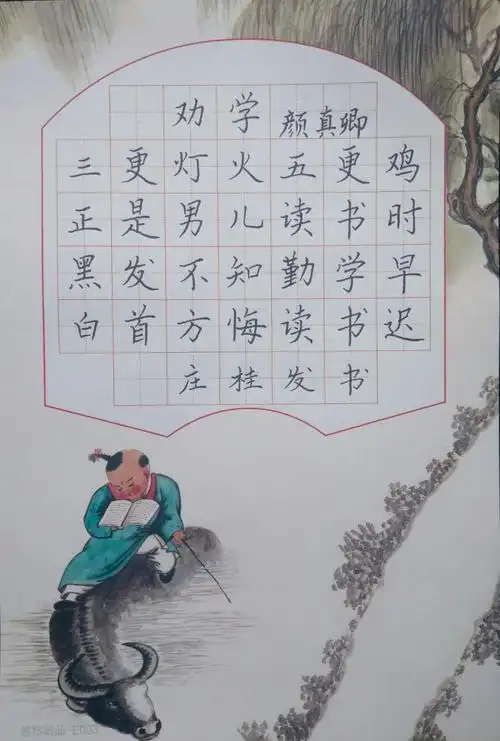 劝学 颜真卿
三更灯火五更鸡
正是男儿读书时
黑发不知勤学早
白首方悔读书迟
庄桂发书